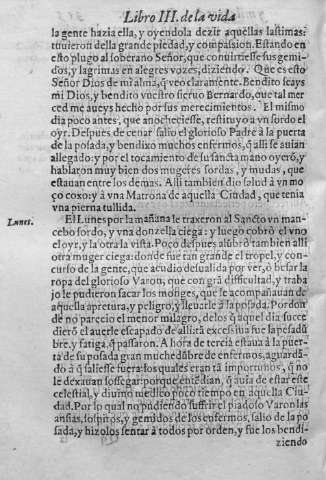 Libro III. de la vida
la gente hazia ella, y oyendola dezir aquellas lastimas:
tuuieron della grande piedad, y compassion. Estando en
esto plugo al soberano Señor, que conuirtiesse sus gemi-
dos, y lagrimas en alegres vozes, diziendo. Que es esto
Señor Dios de mi alma, q̃ veo claramente. Bendito seays
mi Dios, y bendito vuestro sieruo Bernardo, que tal mer
ced me aueys hecho por sus merecimientos. El mismo
dia poco antes, que anocheciesse, restituyo a vn sordo el
oyr. Despues de cenar salio el glorioso Padre à la puerta
de la posada, y bendixo muchos enfermos, q̃ alli se auian
allegado: y por el tocamiento de su sancta mano oyerõ, y
hablaron muy bien dos mugeres sordas, y mudas, que
estauan entre los demas. Alli tambien dio salud à vn mo
ço coxo: y à vna Matrona de aquella Ciudad, que tenia
vna pierna tullida.
Lunes.
El Lunes por la mañana le traxeron al Sancto vn man-
cebo sordo, y vna donzella ciega: y luego cobrò el vno
el oyr, y la otra la vista. Poco despues alũbrò tambien alli
otra muger ciega: donde fue tan grande el tropel, y con-
curso de la gente, que acudio desualida por ver, ò besar la
ropa del glorioso Varon, que con grã difficultad, y traba
jo le pudieron sacar los monges, que le acompañauan de
aquella apretura, y peligro, y lleuarle à la posada. Por don
de no parecio el menor milagro, delos q̃ aquel dia succe
dierõ el auerle escapado de alli: tã excessiua fue la pesadũ
bre, y fatiga, q̃ passaron. A hora de tercia estaua à la puer-
ta de su posada gran muchedũbre de enfermos, aguardã-
do à q̃ saliesse fuera: los quales eran tã importunos, q̃ no
le dexauan sossegar: porque entẽdian, q̃ auia de estar este
celestial, y diuino medico poco tiempo en aquella Ciu-
dad. Por lo qual no pudiendo suffrir el piadoso Varon las
ansias, sospiros, y gemidos de los enfermos, salio de la po
sada, y hizolos sentar à todos por orden, y fue los bendi-
ziendo